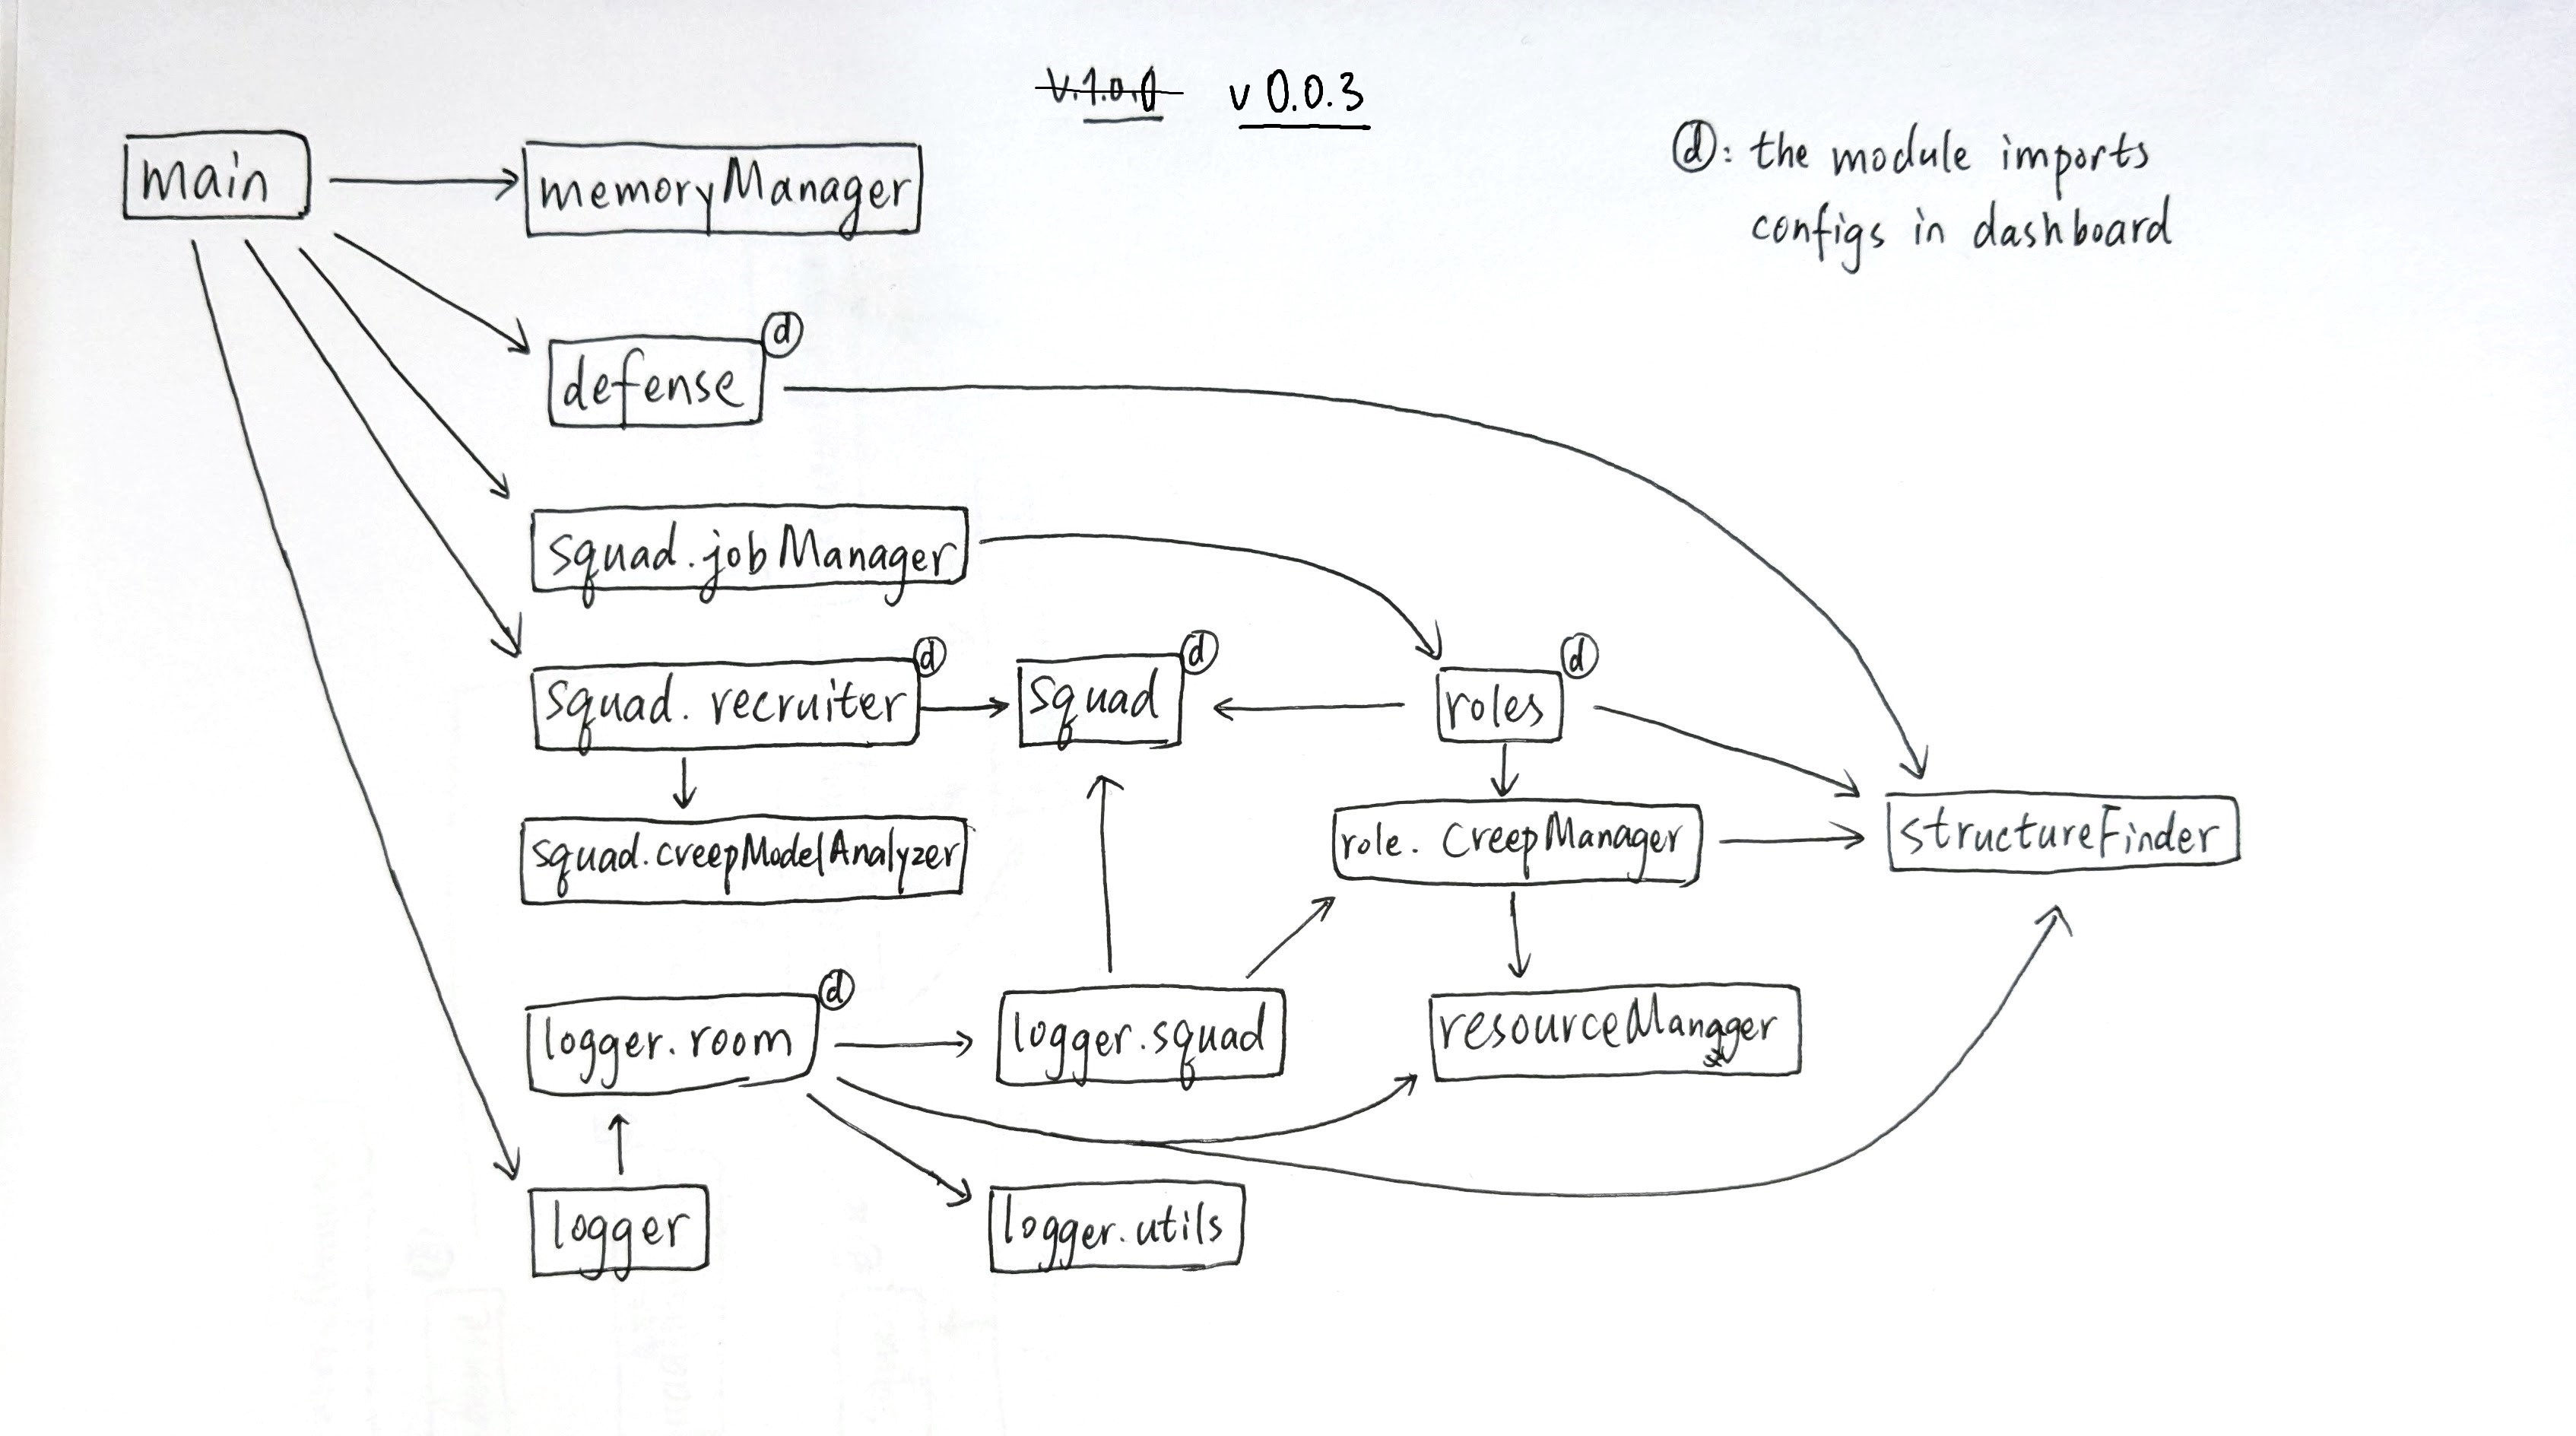 v.1.0.0 v 0.0.3
ⓓ: the module imports
configs in dashboard
main
memoryManager
defense ⓓ
squad.jobManager
squad.recruiter ⓓ
squad ⓓ
roles ⓓ
squad.creepModelAnalyzer
role.CreepManager
structureFinder
logger.room ⓓ
logger.squad
resourceManager
logger
logger.utils